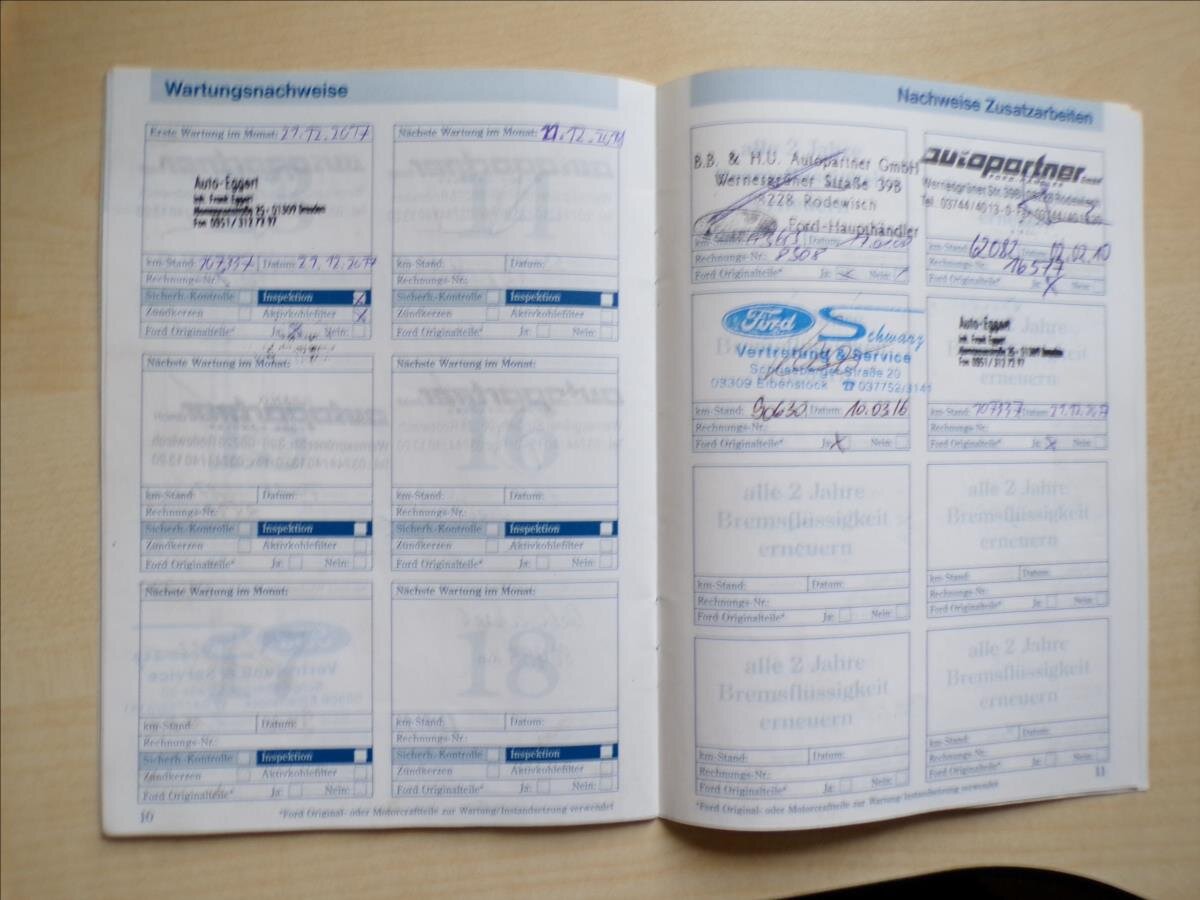 Wartungsnachweise
Erste Wartung im Monat: 21.12.2017
Auto-Eggert
Inh. Frank Eggert
25 - 01309 Dresden
Fon 0351 / 312 73 97
km-Stand: 107337 Datum: 21.12.2017
Rechnungs-Nr.:
Sicherh.-Kontrolle Inspektion X
Zündkerzen Aktivkohlefilter X
Ford Originalteile* Ja: X Nein:
Nächste Wartung im Monat:
km-Stand: Datum:
Rechnungs-Nr.:
Sicherh.-Kontrolle Inspektion
Zündkerzen Aktivkohlefilter
Ford Originalteile* Ja: Nein:
Nächste Wartung im Monat:
km-Stand: Datum:
Rechnungs-Nr.:
Sicherh.-Kontrolle Inspektion
Zündkerzen Aktivkohlefilter
Ford Originalteile* Ja: Nein:
Nächste Wartung im Monat: 12.
km-Stand: Datum:
Rechnungs-Nr.:
Sicherh.-Kontrolle Inspektion
Zündkerzen Aktivkohlefilter
Ford Originalteile* Ja: Nein:
Nächste Wartung im Monat:
16
km-Stand: Datum:
Rechnungs-Nr.:
Sicherh.-Kontrolle Inspektion
Zündkerzen Aktivkohlefilter
Ford Originalteile* Ja: Nein:
Nächste Wartung im Monat:
18
km-Stand: Datum:
Rechnungs-Nr.:
Sicherh.-Kontrolle Inspektion
Zündkerzen Aktivkohlefilter
Ford Originalteile* Ja: Nein:
*Ford Original- oder Motorcraftteile zur Wartung/Instandsetzung verwendet
10
Nachweise Zusatzarbeiten
B.B. & H.U. Autopartner GmbH
Wernesgrüner Straße 39B
08228 Rodewisch
Ford-Haupthändler
km-Stand: Datum:
Rechnungs-Nr.: 8508
Ford Originalteile* Ja: Nein:
autopartner GmbH
Wernesgrüner Str. 39B · 08228 Rodewisch
Tel. 03744/4013-0 · Fax 03744/401320
km-Stand: 62082 Datum: 12.02.10
Rechnungs-Nr.: 16577
Ford Originalteile* Ja: X
Ford Schwarz
Vertretung & Service
Schneeberger Straße 20
08309 Eibenstock ☎ 037752/3141
km-Stand: 90630 Datum: 10.03.16
Rechnungs-Nr.:
Ford Originalteile* Ja: X Nein:
Auto-Eggert
Inh. Frank Eggert
25 - 01309 Dresden
Fon 0351 / 312 73 97
km-Stand: 107337 Datum: 21.12.2017
Rechnungs-Nr.:
Ford Originalteile* Ja: X Nein:
alle 2 Jahre
Bremsflüssigkeit
erneuern
km-Stand: Datum:
Rechnungs-Nr.:
Ford Originalteile* Ja: Nein:
alle 2 Jahre
Bremsflüssigkeit
erneuern
km-Stand: Datum:
Rechnungs-Nr.:
Ford Originalteile* Ja: Nein:
alle 2 Jahre
Bremsflüssigkeit
erneuern
km-Stand: Datum:
Rechnungs-Nr.:
Ford Originalteile* Ja: Nein:
alle 2 Jahre
Bremsflüssigkeit
erneuern
km-Stand: Datum:
Rechnungs-Nr.:
Ford Originalteile* Ja: Nein:
*Ford Original- oder Motorcraftteile zur Wartung/Instandsetzung verwendet
11